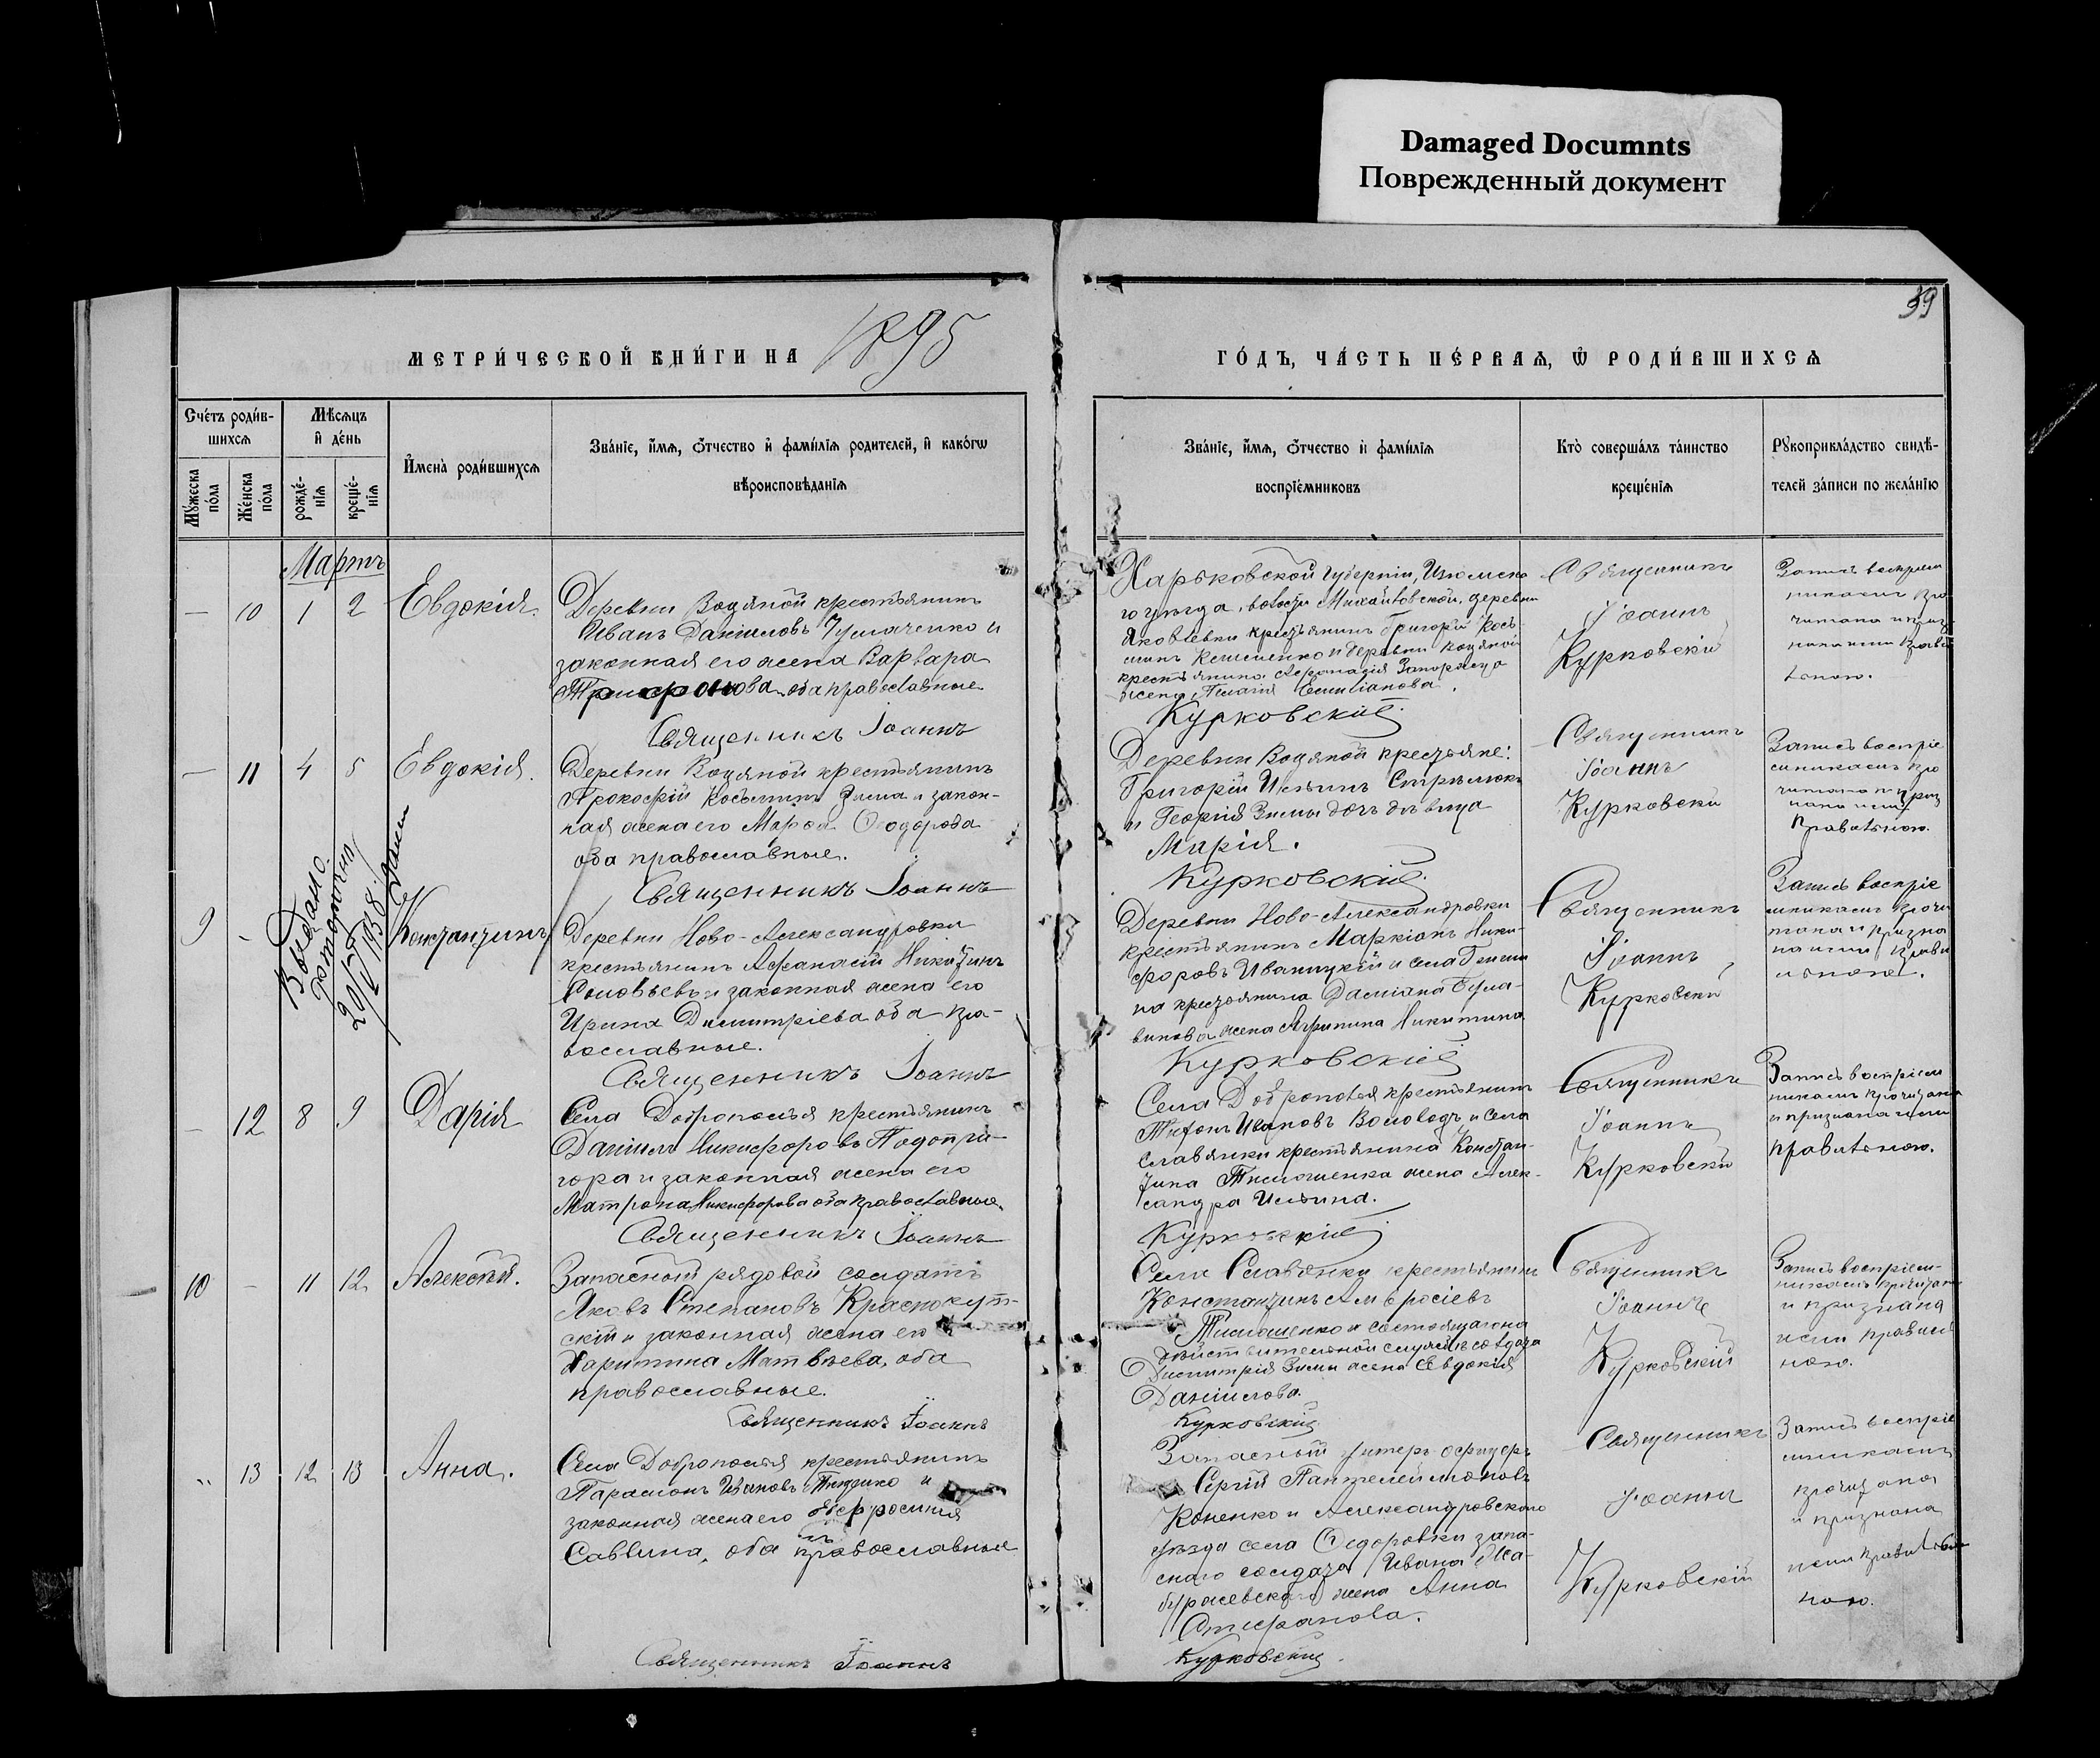 Damaged Documnts
Поврежденный документ
39
МЕТРИ́ЧЕСКОЙ КНИ́ГИ НА 1895
ГО́ДЪ, ЧА́СТЬ ПЕ́РВАЯ, Ѡ҆ РОДИ́ВШИХСЯ
Сче́тъ роди́в-
шихся
Мѣ́сяцъ
и҆ де́нь
Мꙋ́жеска
по́ла
Же́нска
по́ла
рожде́-
нїя
креще́-
нїя
И҆мена̀ роди́вшихся
Зва́нїе, и҆́мя, ѻ҆́тчество и҆ фами́лїя родителей, и҆ како́гѡ
вѣроисповѣ́данїя
Зва́нїе, и҆́мя, ѻ҆́тчество и҆ фами́лїя
воспрїе́мниковъ
Кто̀ соверша́лъ та́инство
креще́нїя
Рꙋкоприкла́дство свидѣ́-
телей за́писи по жела́нїю
Мартъ
— 10 1 2 Евдокія.
Деревни Водяной крестьянинъ
Иванъ Даніиловъ и
законная его жена Варвара
оба православные
Священникъ Іоаннъ
Харьковской губерніи, Изюмска
го уѣзда, волости Михайловской, деревни
Яковлевки крестьянинъ Григорій Кось-
минъ и деревни Водяной
крестьянина Аѳанасія
жена Емиліанова.
Курковскій
Священникъ
Іоаннъ
Курковскій
Запись воспріем
никамъ про
читана и приз
нана ими правил
ьною.
— 11 4 5 Евдокія.
Деревни Водяной крестьянинъ
Прокофій Косьминъ Зима и закон-
ная жена его Марѳа Ѳеодорова
оба православные.
Священникъ Іоаннъ
Деревни Водяной крестьяне:
Григорій Ильинъ
и Георгія Зимы дочь дѣвица
Марія.
Курковскій
Священникъ
Іоаннъ
Курковскій
Запись воспріе
мникамъ про
читана и приз
нана ими
правильною.
Выдано
20/II 1938
9 - Константинъ
Деревни Ново-Александровки
крестьянинъ Аѳанасій Никитинъ
Соловьевъ и законная жена его
Ирина Димитріева оба пра-
вославные.
Священникъ Іоаннъ
Деревни Ново-Александровки
крестьянинъ Маркіанъ Ники-
форовъ Иваницкій и села
на крестьянина Даміана Була-
винова жена Агрипина Никитина
Курковскій
Священникъ
Іоаннъ
Курковскій
Запись воспріе
мникамъ прочи
тана и призна
на ими прави
льною.
— 12 8 9 Дарія
Села Доброполья крестьянинъ
Даніилъ Никифоровъ Подопри-
гора и законная жена его
Матрона Никифорова оба православные.
Священникъ Іоаннъ
Села Доброполья крестьянинъ
Тихонъ Ивановъ Воловодъ и села
Славянки крестьянина Констан-
тина Тимошенка жена Алек-
сандра Ильина.
Курковскій
Священникъ
Іоаннъ
Курковскій
Запись воспріем
никамъ прочитана
и признана ими
правильною.
10 — 11 12 Алексѣй.
Запасный рядовой солдатъ
Яковъ Степановъ Краснокут-
скій и законная жена его
Харитина Матвѣева, оба
православные.
Священникъ Іоаннъ
Села Славянки крестьянинъ
Константинъ Амвросіевъ
Тимошенко и состоящаго на
дѣйствительной службѣ солдата
Димитрія Зимы жена Евдокія
Даніилова.
Курковскій
Священникъ
Іоаннъ
Курковскій
Запись воспріем-
никамъ прочитана
и признана
ими правиль
ною.
„ 13 12 13 Анна.
Села Доброполья крестьянинъ
Парамонъ Ивановъ и
законная жена его Евфросинія
Саввина, оба православные
Священникъ Іоаннъ
Запасный унтеръ-офицеръ
Сергій Пантелеймоновъ
Коненко и Александровского
уѣзда села Ѳедоровки запа-
сного солдата Ивана
жена Анна
Стефанова.
Курковскій
Священникъ
Іоаннъ
Курковскій
Запись воспріе
мникамъ
прочитана
и признана
ими правиль
ною.